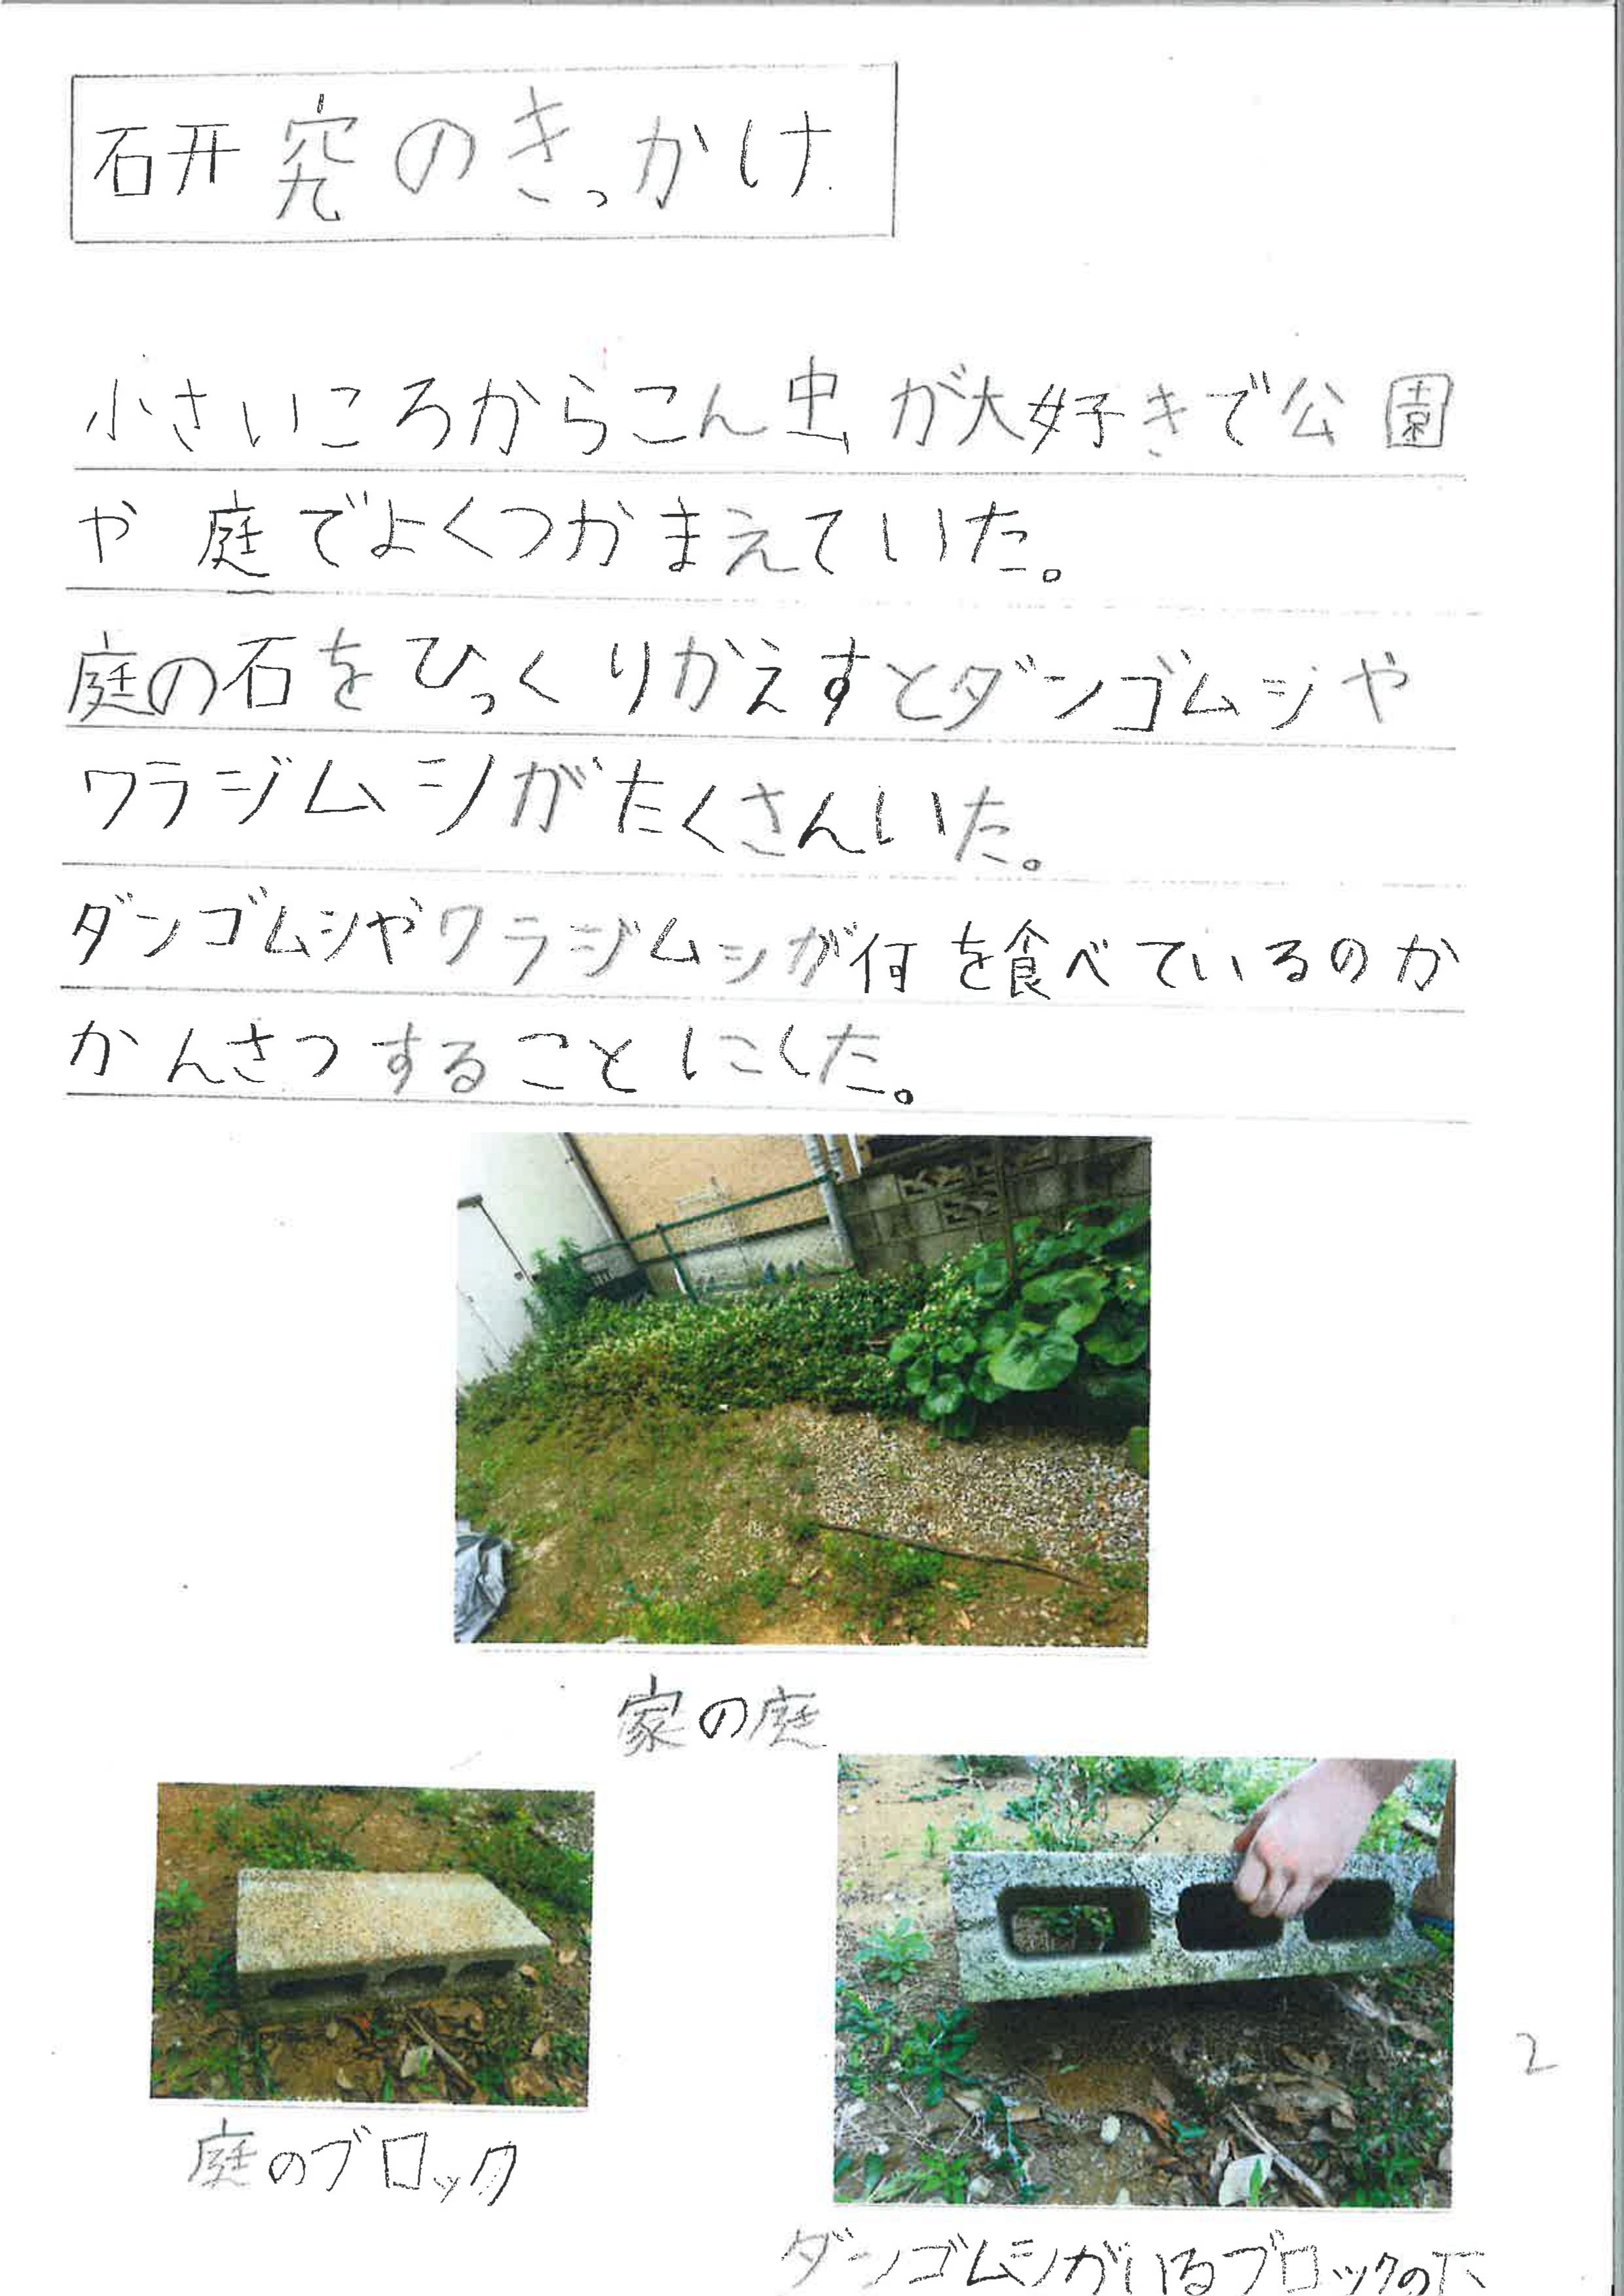 研究のきっかけ
小さいころからこん虫が大好きで公園
や庭でよくつかまえていた。
庭の石をひっくりかえすとダンゴムシや
ワラジムシがたくさんいた。
ダンゴムシやワラジムシが何を食べているのか
かんさつすることにした。
家の庭
庭のブロック
2
ダンゴムシがいるブロックの下